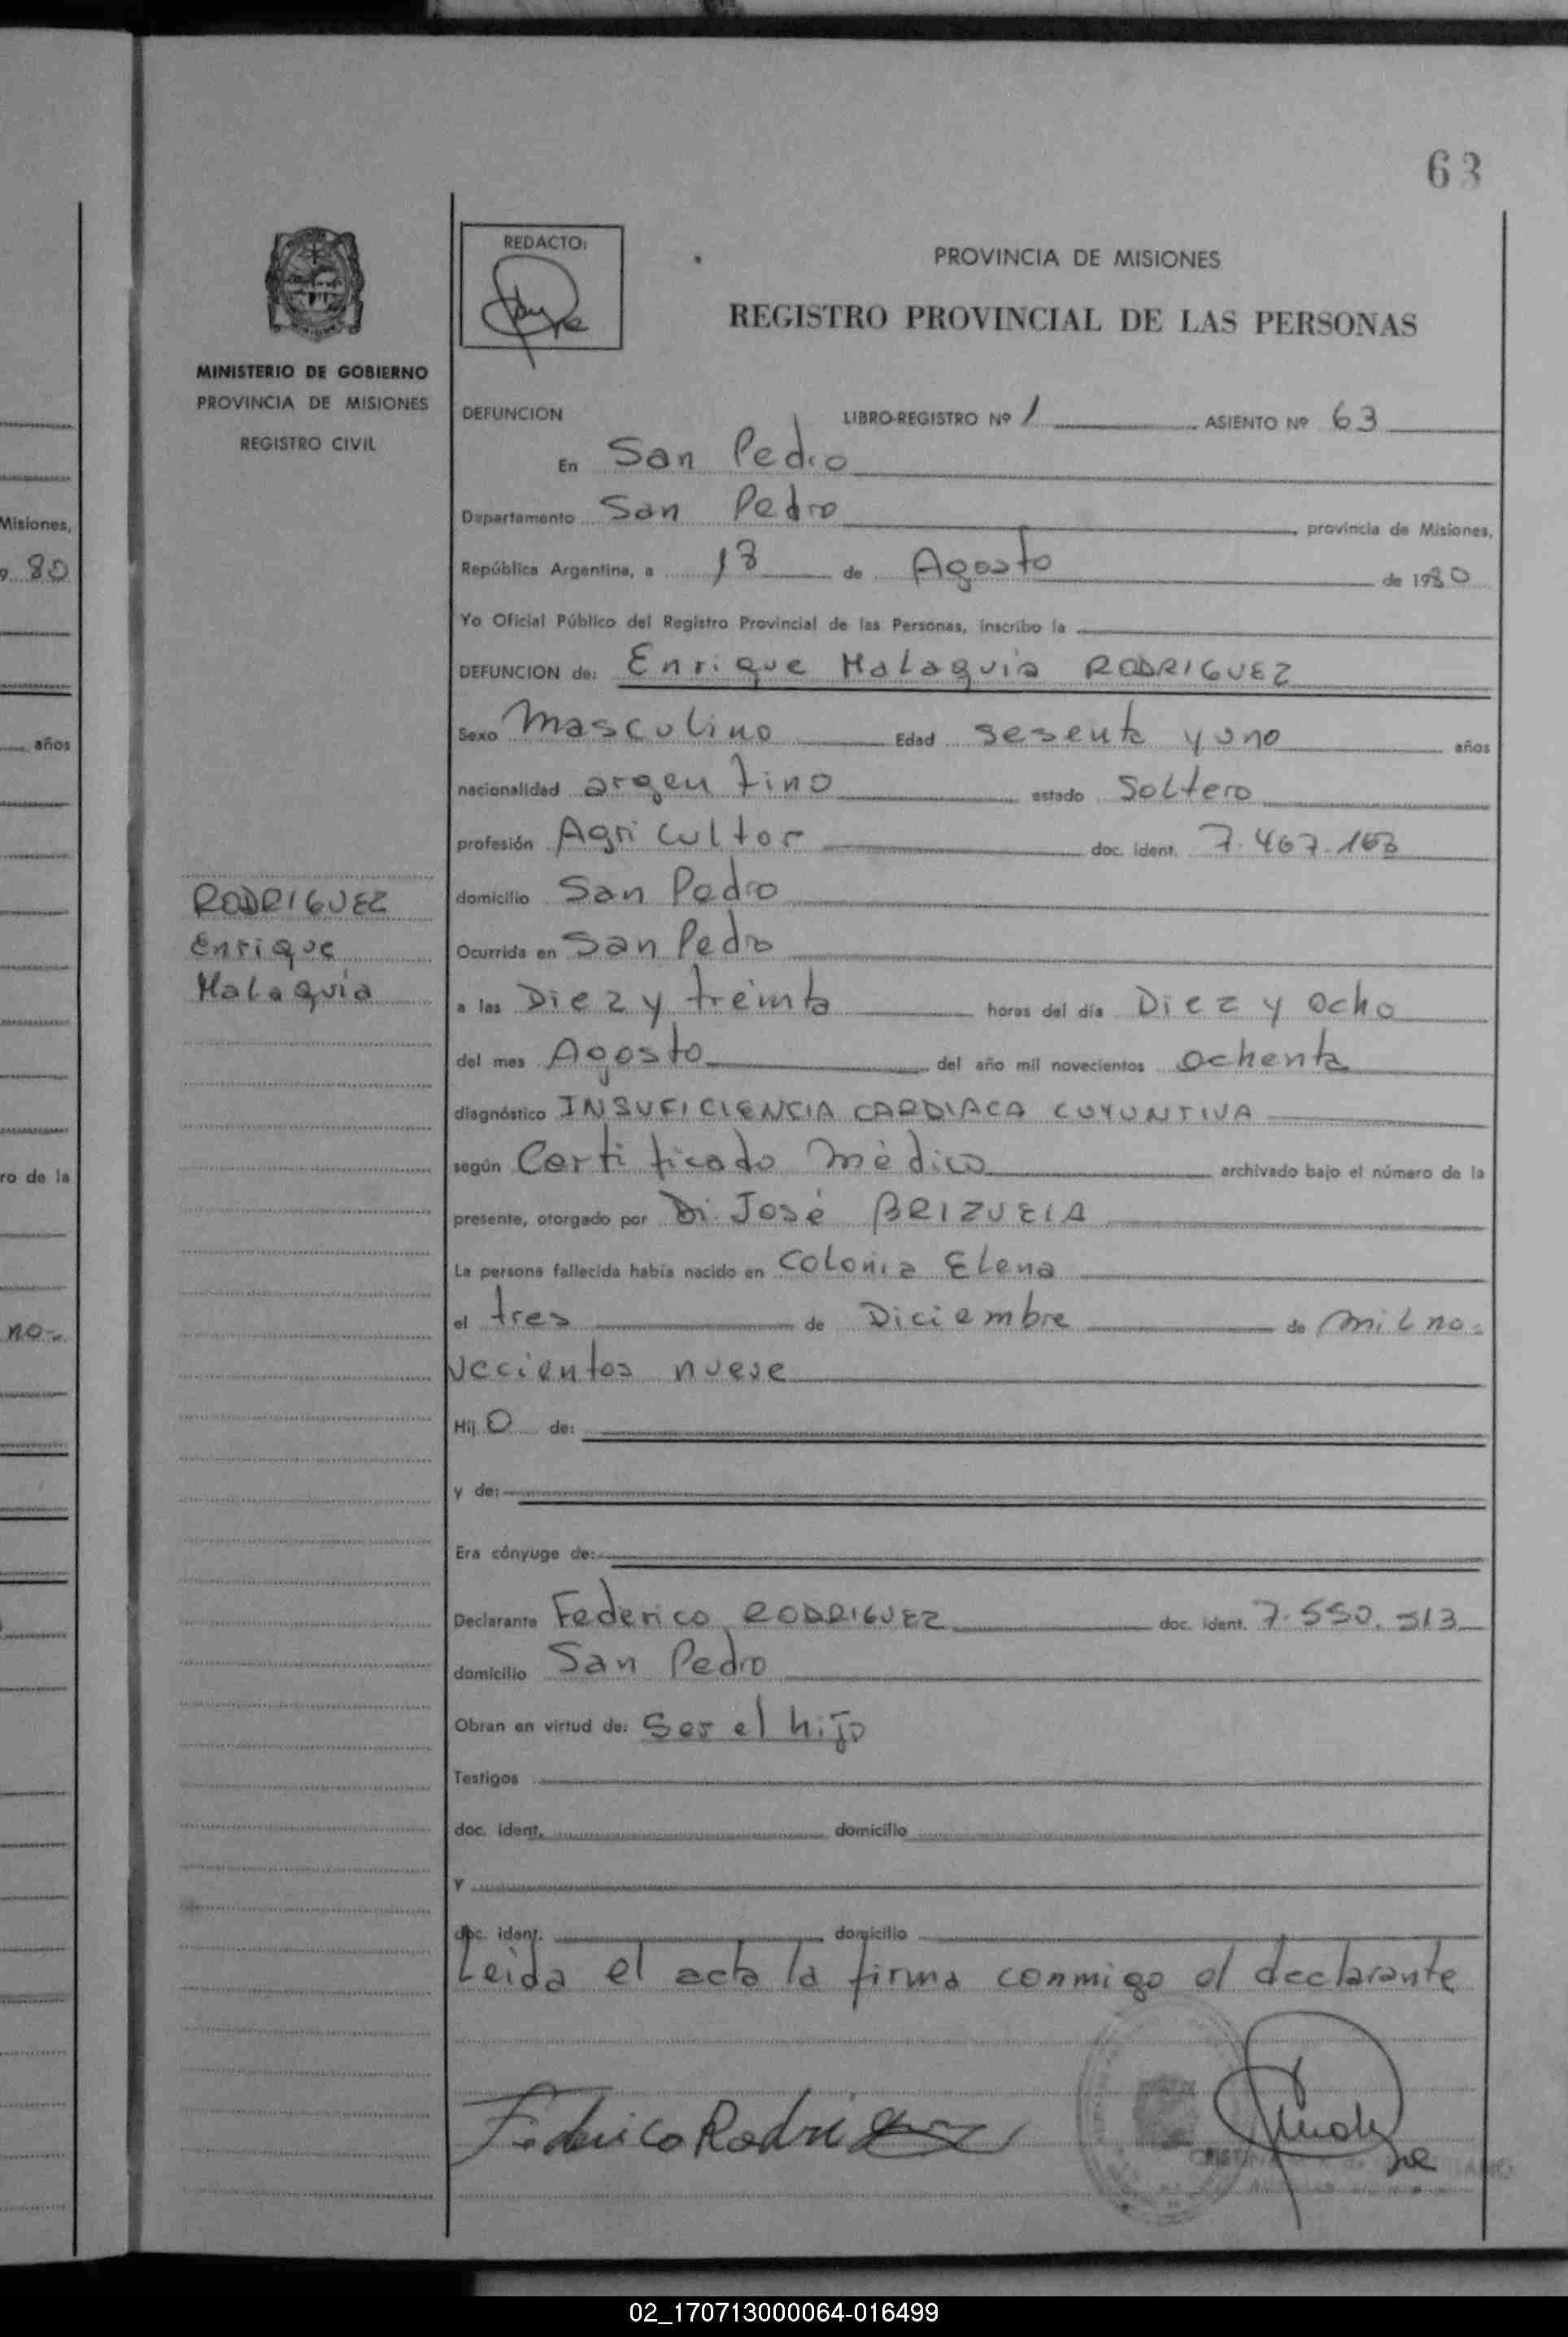 63
REDACTO:
PROVINCIA DE MISIONES
REGISTRO PROVINCIAL DE LAS PERSONAS
MINISTERIO DE GOBIERNO
PROVINCIA DE MISIONES
REGISTRO CIVIL
DEFUNCION LIBRO-REGISTRO Nº 1 ASIENTO Nº 63
En San Pedro
Departamento San Pedro, provincia de Misiones,
República Argentina, a 18 de Agosto de 1980
Yo Oficial Público del Registro Provincial de las Personas, inscribo la
DEFUNCION de: Enrique Malaquia RODRIGUEZ
Sexo Masculino Edad sesenta y uno años
nacionalidad argentino estado Soltero
profesión Agricultor doc. ident. 7.467.163
domicilio San Pedro
Ocurrida en San Pedro
a las Diez y treinta horas del día Diez y ocho
del mes Agosto del año mil novecientos ochenta
diagnóstico INSUFICIENCIA CARDIACA CUYUNTIVA
según Certificado Mèdico archivado bajo el número de la
presente, otorgado por Di. José BRIZUELA
La persona fallecida había nacido en Colonia Elena
el tres de Diciembre de mil no-
vecientos nueve
Hij O de:
y de:
Era cónyuge de:
Declarante Federico RODRIGUEZ doc. ident. 7.550.513
domicilio San Pedro
Obran en virtud de: Ser el hijo
Testigos
doc. ident. domicilio
Y
doc. ident. domicilio
Leida el acta la firma conmigo el declarante
Federico Rodriguez
RODRIGUEZ
Enrique
Malaquia
Misiones,
80
años
ro de la
no-
02_170713000064-016499